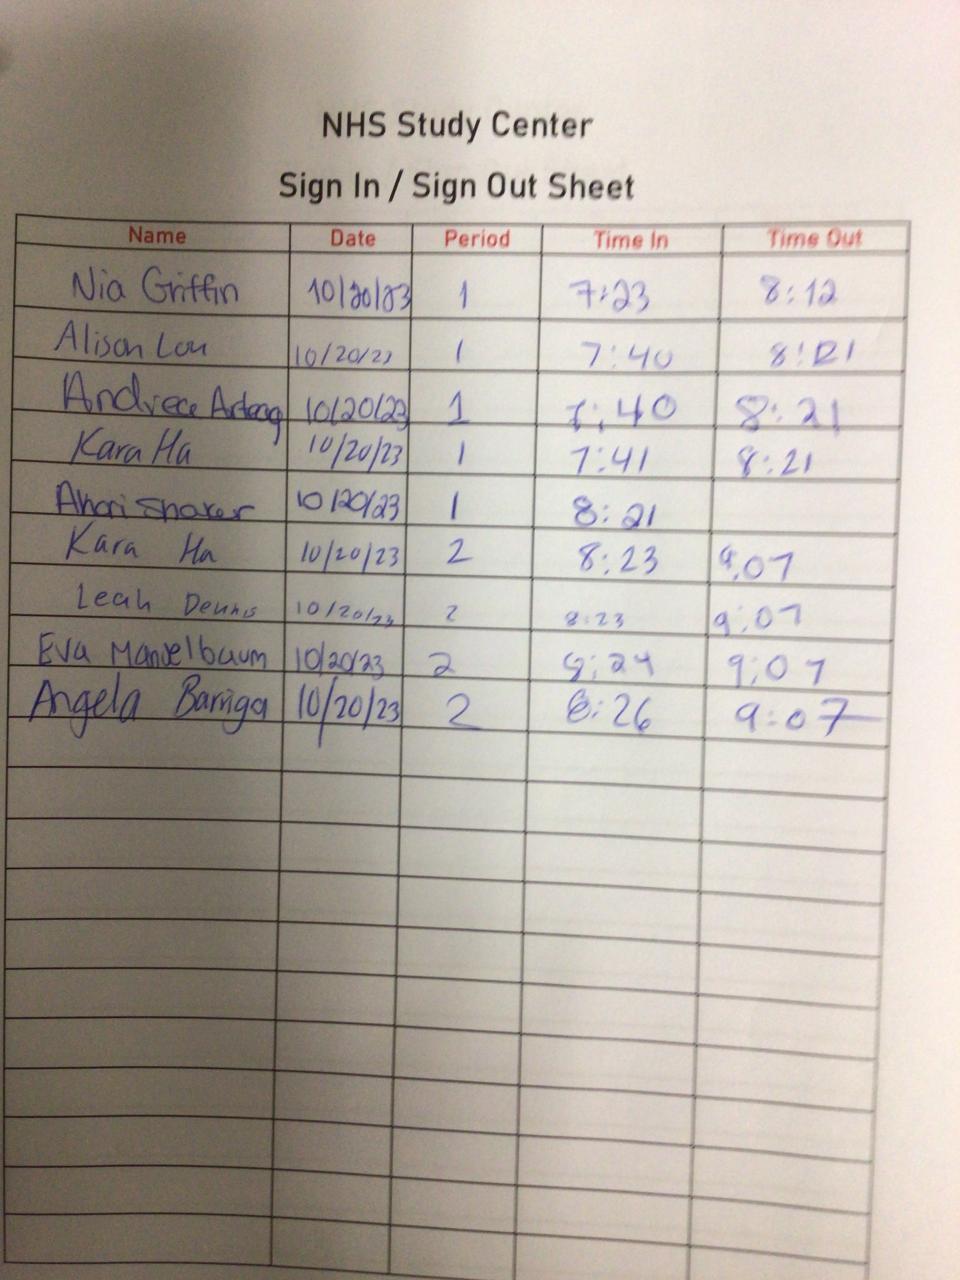 NHS Study Center
Sign In / Sign Out Sheet
Name Date Period Time In Time Out
Nia Griffin 10/20/23 1 7:23 8:12
Alison Lou 10/20/23 1 7:40 8:21
Andreea Arteag 10/20/23 1 7:40 8:21
Kara Ha 10/20/23 1 7:41 8:21
10/20/23 1 8:21
Kara Ha 10/20/23 2 8:23 9:07
Leah Dennis 10/20/23 2 8:23 9:07
Eva Mandelbaum 10/20/23 2 8:24 9:07
Angela Barriga 10/20/23 2 8:26 9:07